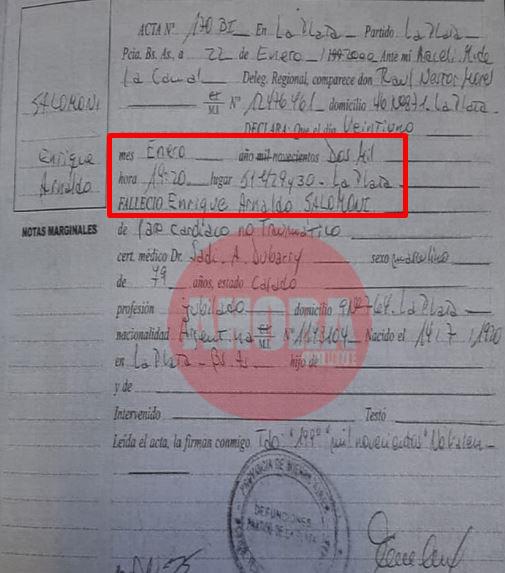 ACTA Nº 170 BI En La Plata Partido La Plata
Pcia. Bs. As., a 22 de Enero 2000 Ante mí Araceli M. de
La Canal Deleg. Regional, comparece don Raul Nestor
MI Nº 12476461 domicilio 46 Nº 871. La Plata
DECLARA: Que el día Veintiuno
SALOMONI
Enrique
Arnaldo
mes Enero año mil novecientos Dos Mil
hora 19:20 lugar 51 y 30 - La Plata
FALLECIO Enrique Arnaldo SALOMONI
NOTAS MARGINALES
de Paro cardíaco no Traumático
cert. médico Dr. A. Dubarry sexo masculino
de 79 años, estado Casado
profesión Jubilado domicilio 9 Nº 764. La Plata
nacionalidad Argentina MI Nº Nacido el 14 / 7 / 1920
en La Plata - Bs. As. hijo de
y de
Intervenido Testó
Leída el acta, la firman conmigo Tdo: "199" "mil novecientos" No Valen
AHORA
PROVINCIA DE BUENOS AIRES
DEFUNCIONES
PARTIDO DE LA PLATA